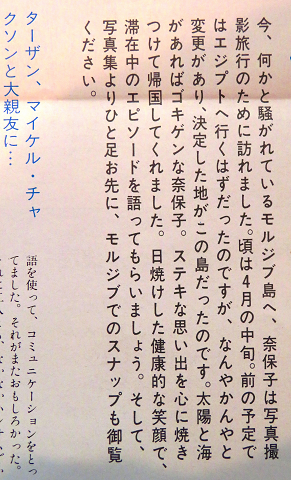 今、何かと騒がれているモルジブ島へ、奈保子は写真撮
影旅行のために訪れました。頃は4月の中旬。前の予定で
はエジプトへ行くはずだったのですが、なんやかんやと
変更があり、決定した地がこの島だったのです。太陽と海
があればゴキゲンな奈保子。ステキな思い出を心に焼き
つけて帰国してくれました。日焼けした健康的な笑顔で、
滞在中のエピソードを語ってもらいましょう。そして、
写真集よりひと足お先に、モルジブでのスナップも御覧
ください。
ターザン、マイケル・チャ
クソンと大親友に…
語を使って、コミュニケーションをとっ
てました。それがまたおもしろかった。